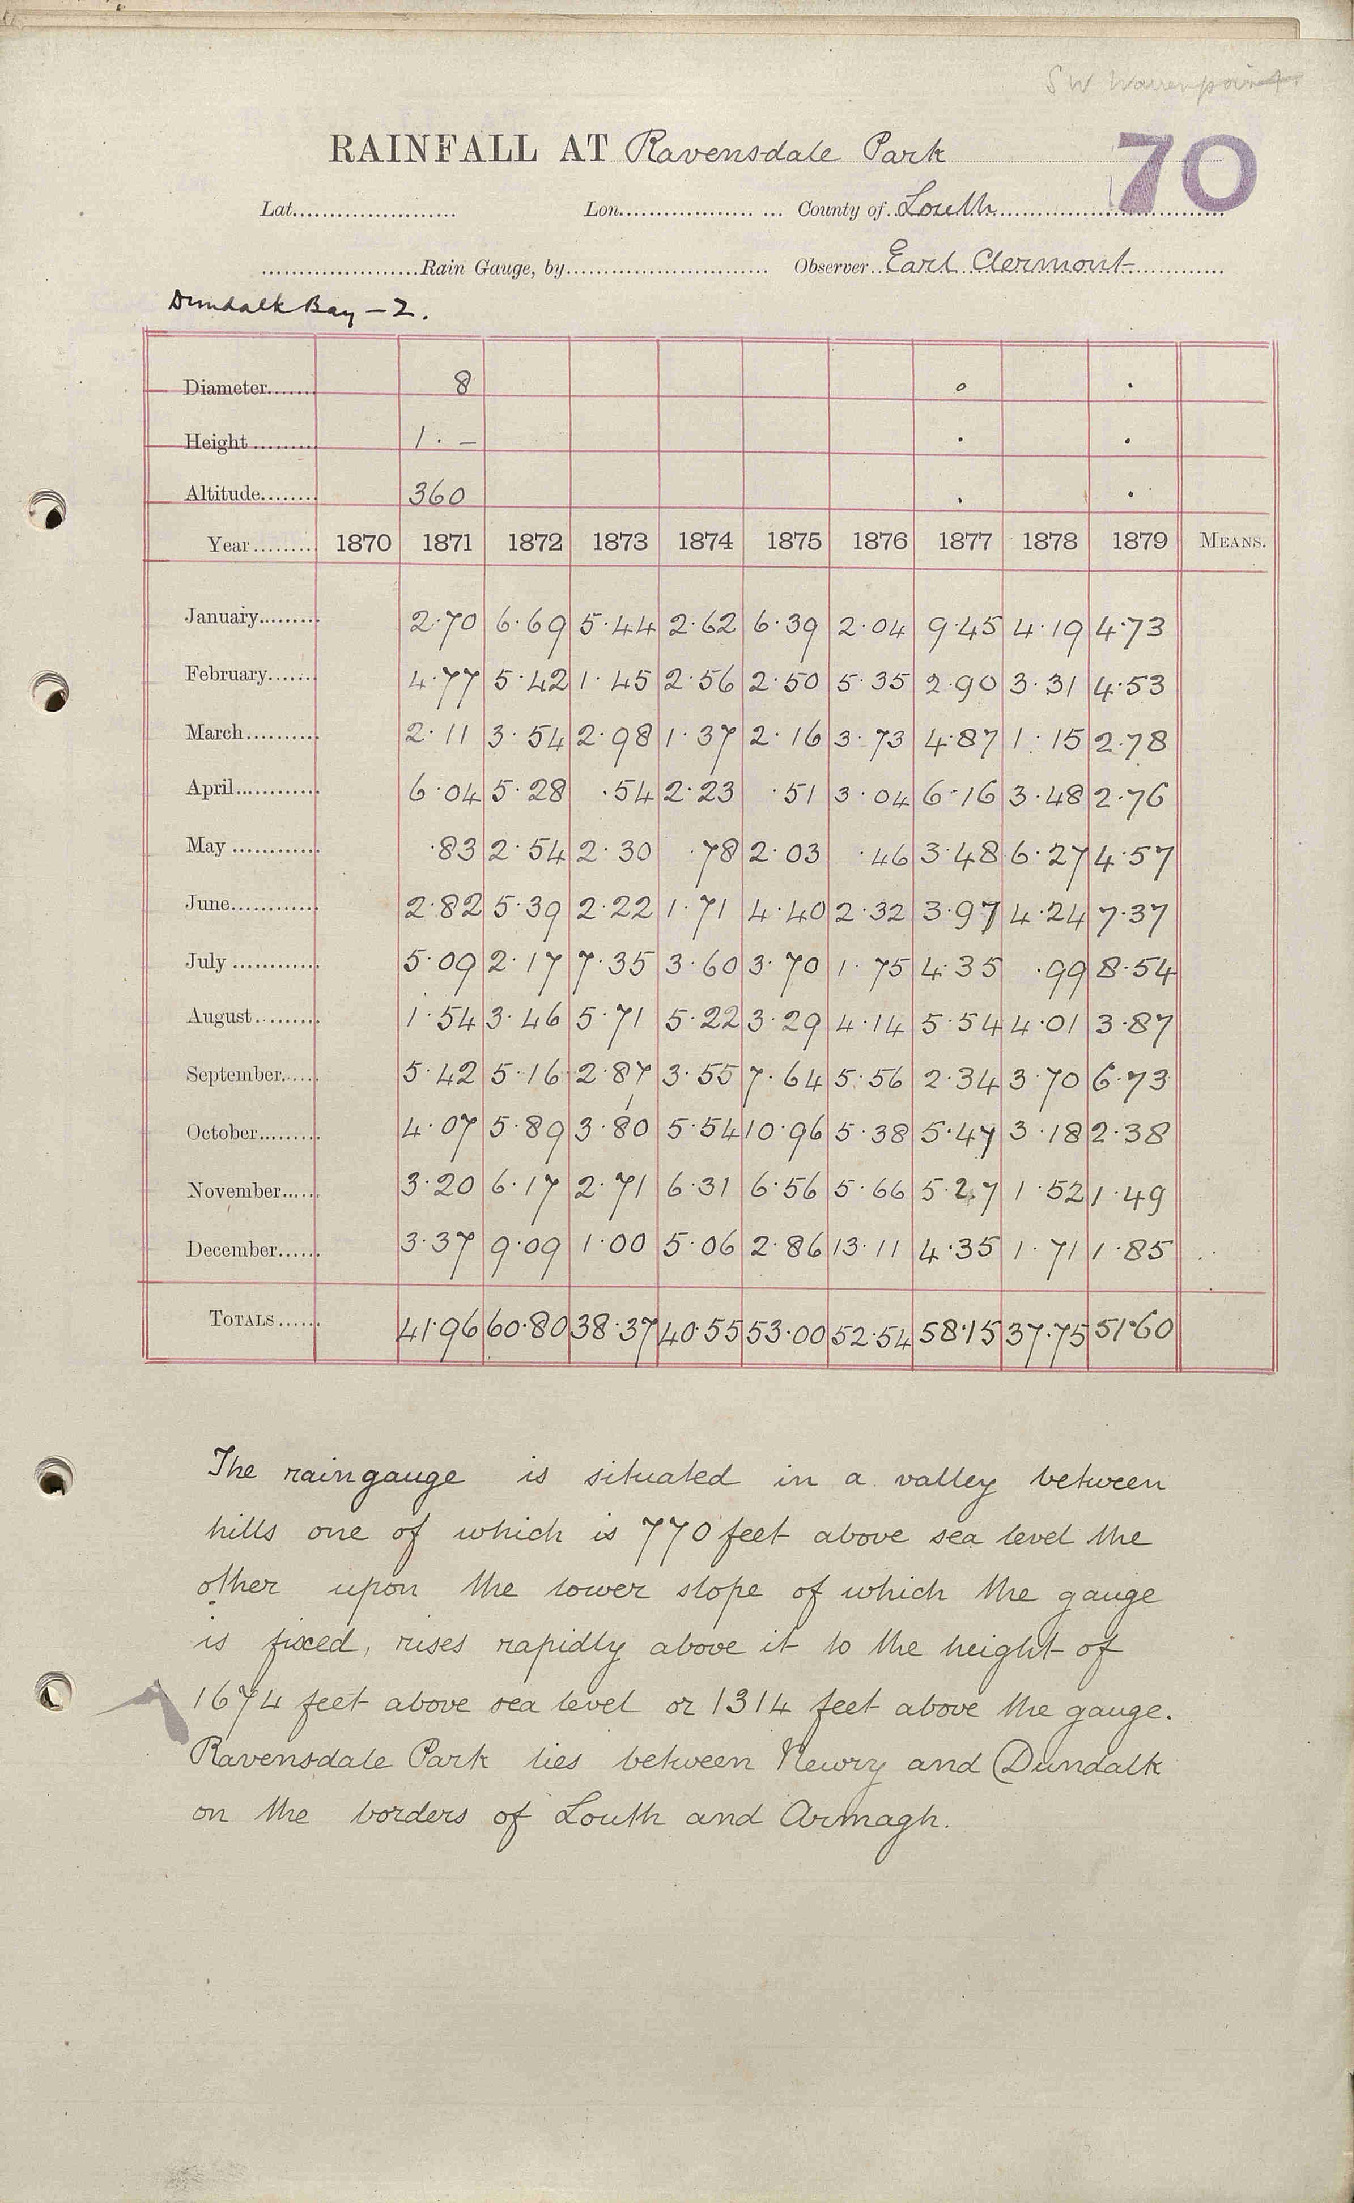 SW Warrenpoint
RAINFALL AT Ravensdale Park
70
Lat. Lon. County of Louth
Rain Gauge, by Observer Earl Clermont
Dundalk Bay – 2.
Diameter 8
Height 1 . –
Altitude 360
Year 1870 1871 1872 1873 1874 1875 1876 1877 1878 1879 MEANS.
January 2.70 6.69 5.44 2.62 6.39 2.04 9.45 4.19 4.73
February 4.77 5.42 1.45 2.56 2.50 5.35 2.90 3.31 4.53
March 2.11 3.54 2.98 1.37 2.16 3.73 4.87 1.15 2.78
April 6.04 5.28 .54 2.23 .51 3.04 6.16 3.48 2.76
May .83 2.54 2.30 .78 2.03 .46 3.48 6.27 4.57
June 2.82 5.39 2.22 1.71 4.40 2.32 3.97 4.24 7.37
July 5.09 2.17 7.35 3.60 3.70 1.75 4.35 .99 8.54
August 1.54 3.46 5.71 5.22 3.29 4.14 5.54 4.01 3.87
September 5.42 5.16 2.87 3.55 7.64 5.56 2.34 3.70 6.73
October 4.07 5.89 3.80 5.54 10.96 5.38 5.47 3.18 2.38
November 3.20 6.17 2.71 6.31 6.56 5.66 5.27 1.52 1.49
December 3.37 9.09 1.00 5.06 2.86 13.11 4.35 1.71 1.85
TOTALS 41.96 60.80 38.37 40.55 53.00 52.54 58.15 37.75 51.60
The raingauge is situated in a valley between
hills one of which is 770 feet above sea level the
other upon the lower slope of which the gauge
is fixed, rises rapidly above it to the height of
1674 feet above sea level or 1314 feet above the gauge.
Ravensdale Park lies between Newry and Dundalk
on the borders of Louth and Armagh.